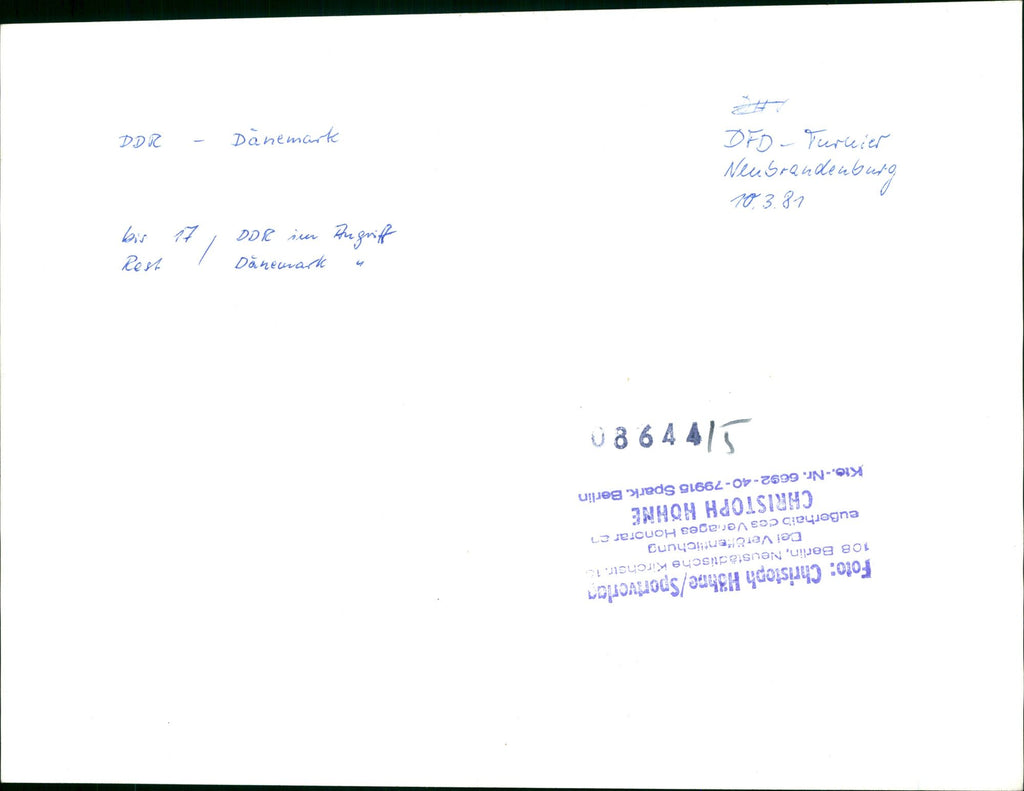 DDR - Dänemark
DFD - Turnier
Neubrandenburg
10.3.81
bis 17 / DDR im Angriff
Rest / Dänemark "
08644/5
Foto: Christoph Höhne/Sportverlag
108 Berlin, Neustädtische Kirchstr. 15
Bei Veröffentlichung
außerhalb des Verlages Honorar an
CHRISTOPH HÖHNE
Kto.-Nr. 6692-40-79915 Spark. Berlin